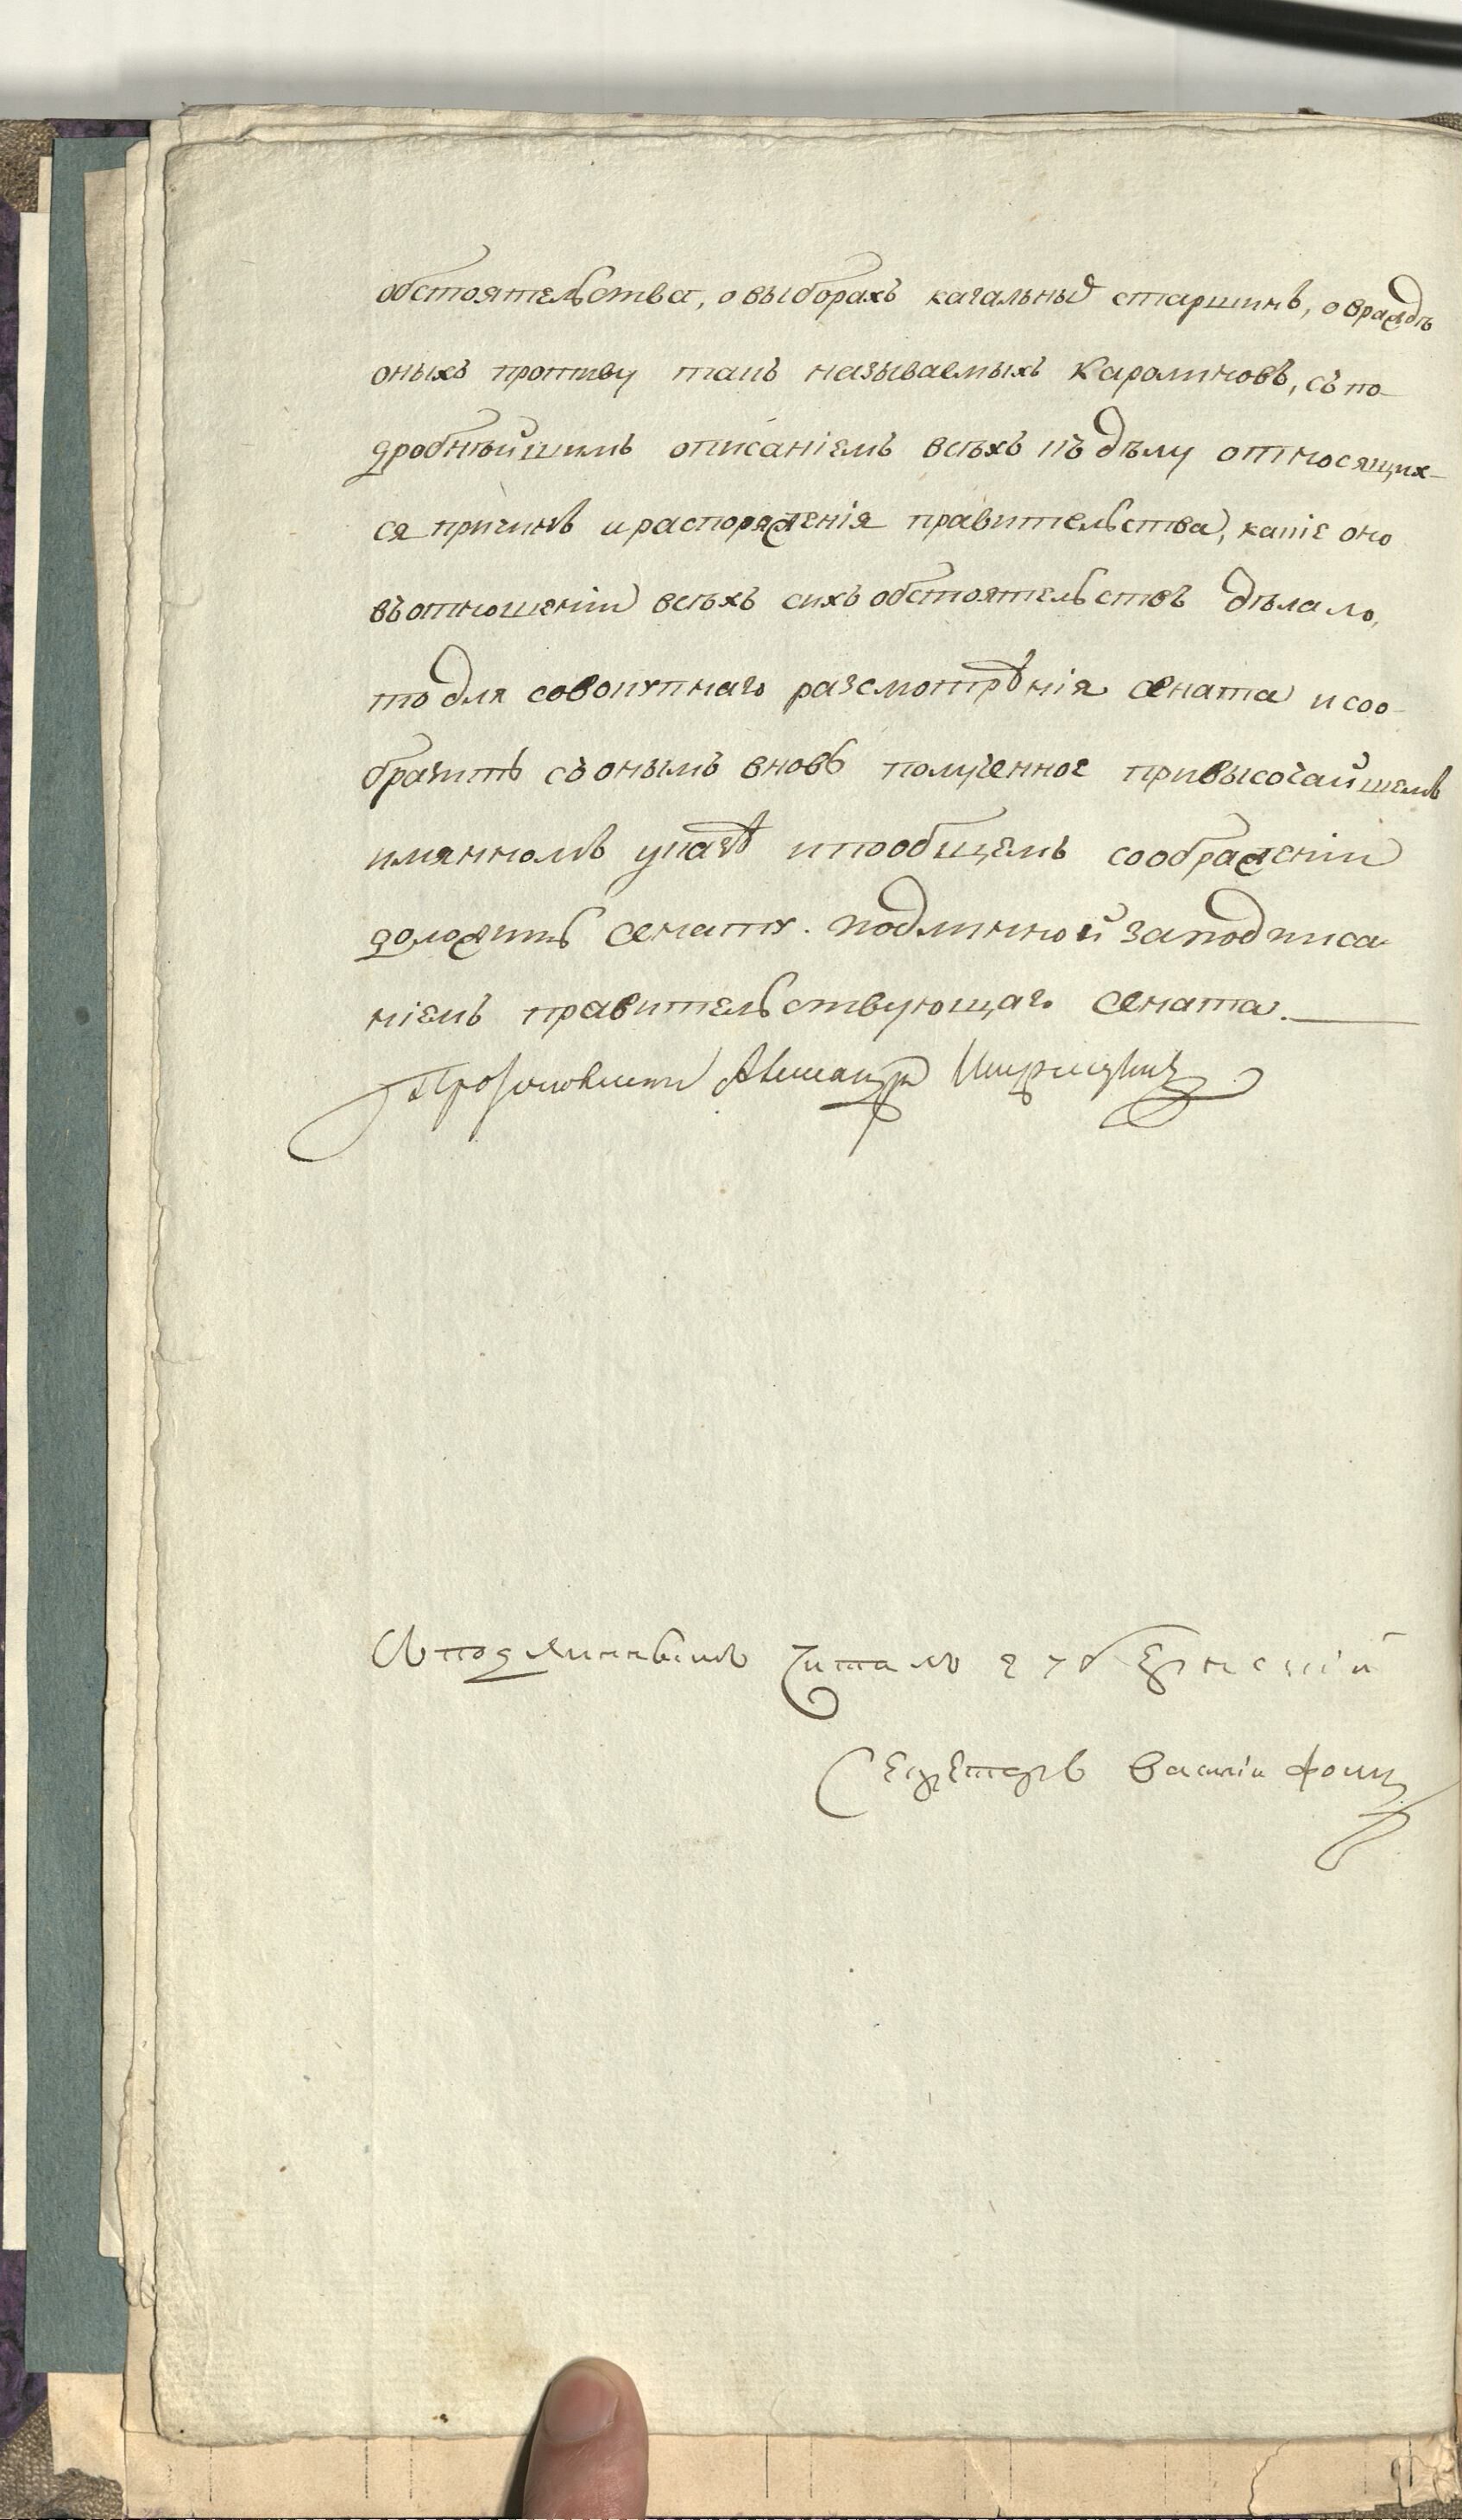 обстоятельства, о выборахъ кагальныхъ старшинъ, о враждѣ
оныхъ противу такъ называемыхъ Каролиновъ, съ по-
дробнѣйшимъ описаніемъ всѣхъ къ дѣлу относящих-
ся причинъ и распоряженія правительства, какіе оно
въ отношеніи всѣхъ сихъ обстоятельствъ дѣлало,
то для совокупнаго разсмотрѣнія Сената и соо-
бразить съ онымъ вновь полученное при высочайшемъ
имянномъ указѣ и по общемъ соображеніи
доложить Сенату. Подлинной за подписа-
ніемъ правительствующаго Сената.
Съ подлиннымъ читалъ губернскій
Секретарь Василій